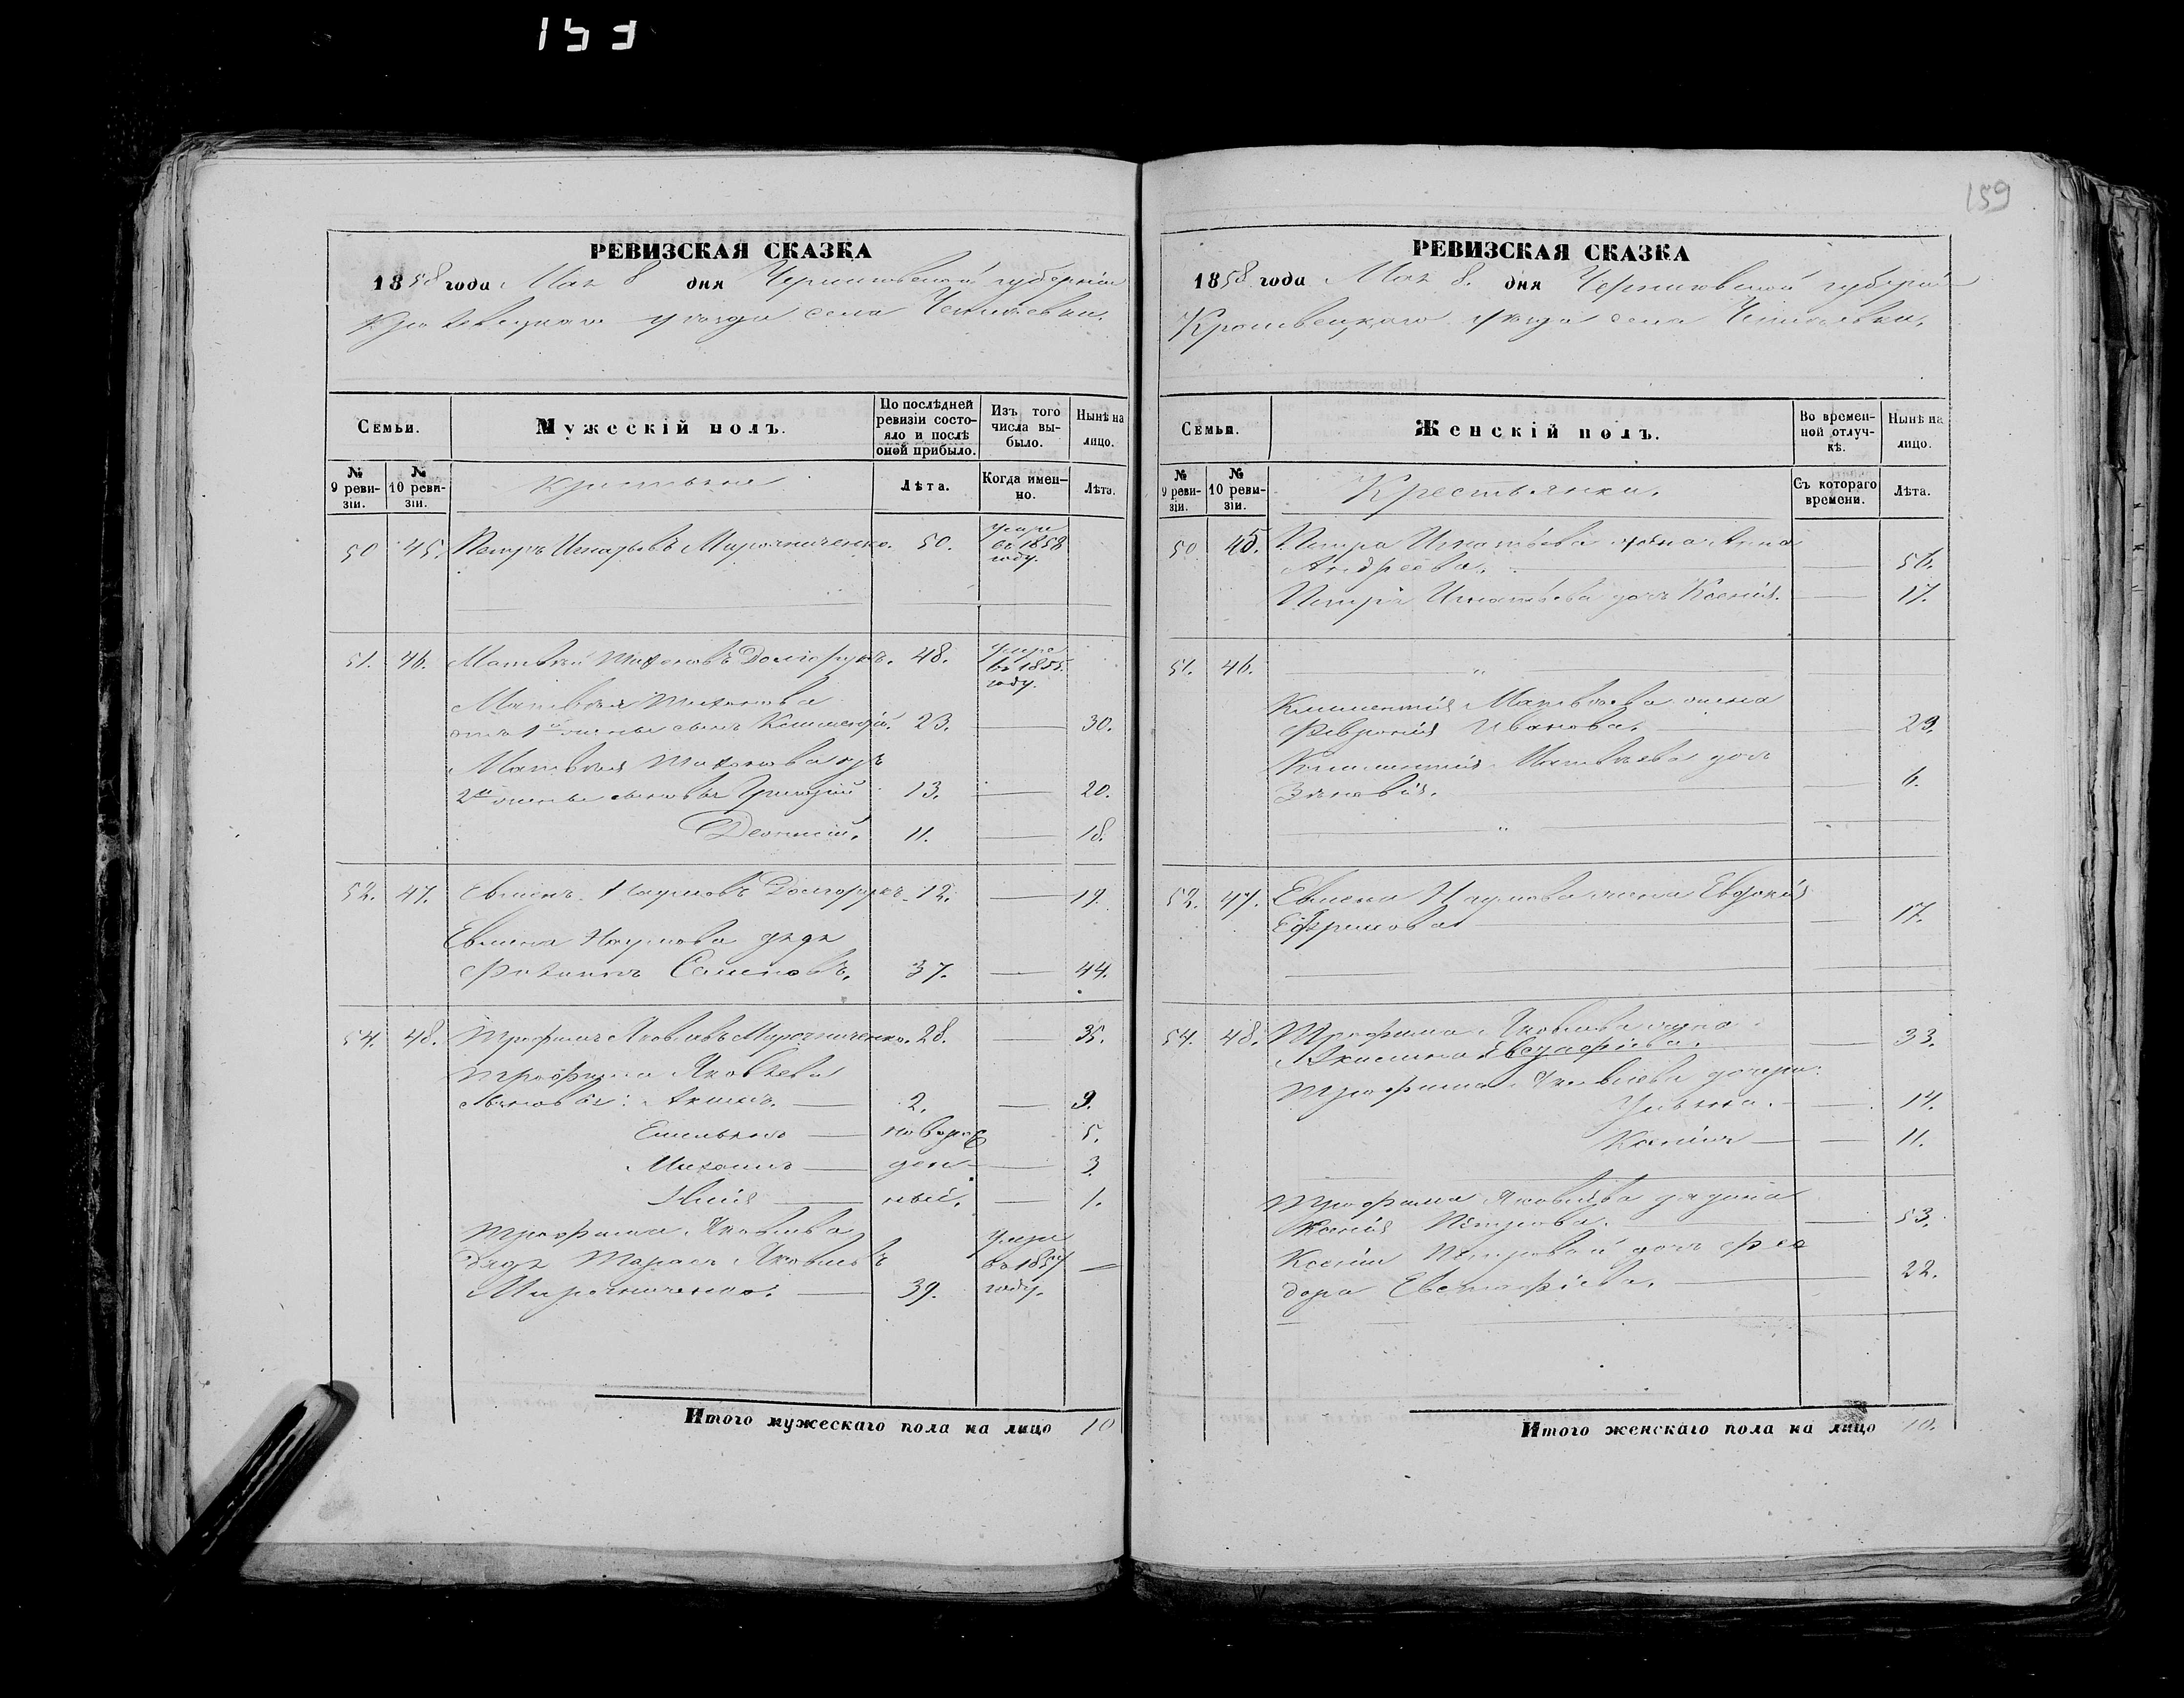 153
159
РЕВИЗСКАЯ СКАЗКА
1858 года Мая 8 дня Черниговской губернии
Кролевецкаго уезда села
Семьи.
Мужескій полъ.
По послѣдней ревизіи состояло и послѣ оной прибыло.
Изъ того числа выбыло.
Нынѣ на лицо.
№ 9 ревизіи.
№ 10 ревизіи.
Крестьяне
Лѣта.
Когда именно.
Лѣта.
50 45. Петръ Игнатьевъ Мирошниченко. 50. умре въ 1858 году.
51. 46. Матвѣй Тихоновъ Долгорукъ. 48. умре въ 1855 году.
Матвѣя Тихонова
отъ 1й жены сынъ Климентій. 23. 30.
Матвѣя Тихонова отъ
2й жены сыновья Григорій 13. 20.
Леонтій. 11. 18.
52. 47. Евменъ Наумовъ Долгорукъ. 12. 19.
Евмена Наумова дядя
Семеновъ. 37. 44.
54. 48. Трофимъ Яковлевъ Мирошниченко. 28. 35.
Трофима Яковлева
сыновья: Акимъ. 2. 9.
Емельянъ новорож 5.
Михаилъ ден 3
Илія ный. 1.
Трофима Яковлева
дядя Тарасъ Яковлевъ
Мирошниченко. 39. умре въ 1857 году.
Итого мужескаго пола на лицо 10
РЕВИЗСКАЯ СКАЗКА
1858 года Мая 8. дня Черниговской губернии
Кролевецкаго уезда села
Семьи.
Женскій полъ.
Во временной отлучкѣ.
Нынѣ на лицо.
№ 9 ревизіи.
№ 10 ревизіи.
Крестьянки.
Съ котораго времени.
Лѣта.
50 45. Петра Игнатьева жена Анна
Андреева. 56.
Петра Игнатьева дочь Ксенія. 17.
51. 46. "
Климентія Матвѣева жена
Февронія Иванова. 29.
Климентія Матвѣева дочь
Зѣновія. 6.
"
52. 47. Евмена Наумова жена Евдокія
Ефремова 17.
54. 48. Трофима Яковлева жена
Акилина Евстафіева. 33.
Трофима Яковлева дочери:
Ульяна. 14.
Ксенія 11.
Трофима Яковлева
Ксенія Петрова. 53.
Ксеніи Петровой дочь Фео
дора Евстафіева. 22.
Итого женскаго пола на лицо 10.